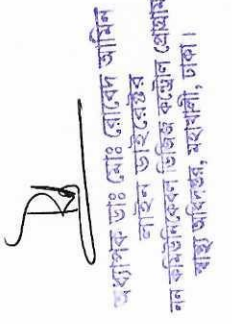 অধ্যাপক ডাঃ মোঃ রোবেদ আমিন
লাইন ডাইরেক্টর
নন কমিউনিকেবল ডিজিজ কন্ট্রোল প্রোগ্রাম
স্বাস্থ্য অধিদপ্তর, মহাখালী, ঢাকা।